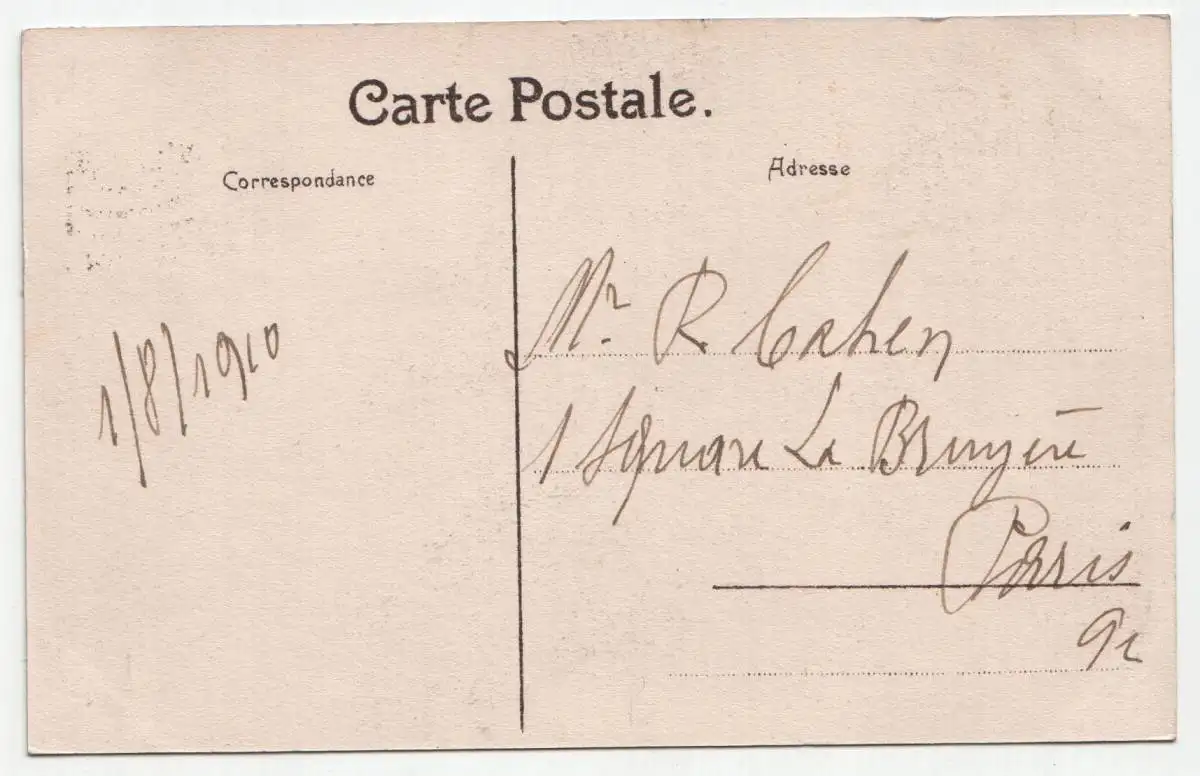 Carte Postale.
Correspondance
Adresse
1/8/1910
Mr. R. Cahen
1 Square La Bruyère
Paris
9e